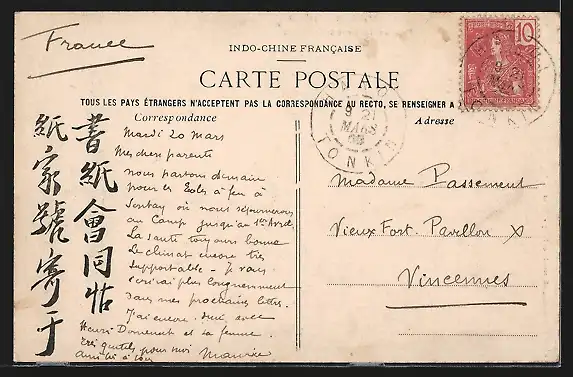 France
INDO-CHINE FRANÇAISE
CARTE POSTALE
TOUS LES PAYS ÉTRANGERS N'ACCEPTENT PAS LA CORRESPONDANCE AU RECTO, SE RENSEIGNER A
Correspondance
Adresse
10
9 21
MARS
TONKIN
書紙會同帖
紙家號寄于
Mardi 20 mars
Mes chers parents
nous partons demain
pour les Ecoles à feu à
Sontay où nous séjournerons
au Camp jusqu'au 1er Avril
La santé toujours bonne
Le climat encore très
supportable - Je vous
écrirai plus longuement
dans mes prochaines lettres.
J'ai encore avec
Henri et sa femme.
gentils pour moi
Maurice
Madame Passement
Vieux Fort. Pavillon X
Vincennes